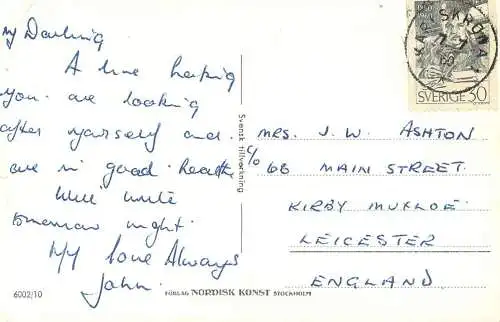 My Darling
A line hoping
you are looking
after yourself and
are in good health
Will write
tomorrow night.
My love Always
John.
6002/10
Svensk tillverkning
FÖRLAG NORDISK KONST STOCKHOLM
KARLSKRONA
7-7
SVERIGE 30
MRS. J. W. ASHTON
C/o 68 MAIN STREET.
KIRBY MUXLOE
LEICESTER
ENGLAND.